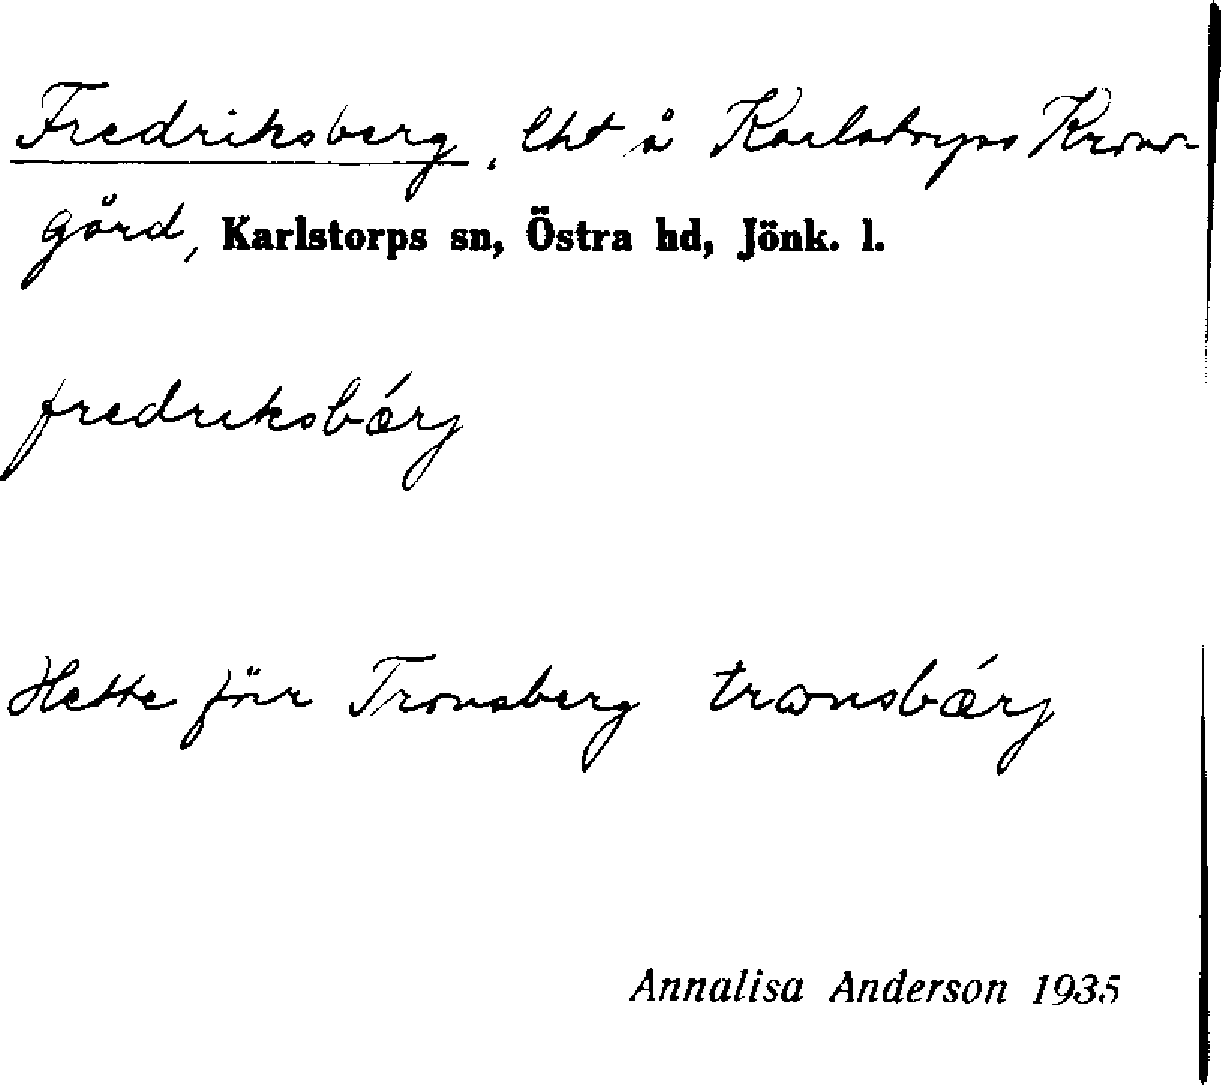 Fredriksberg, lht å Karlstorps Krono-
gård, Karlstorps sn, Östra hd, Jönk. l.
fredriksbǽrj
Hette förr Tronsberg trωnsbǽrj
Annalisa Anderson 1935